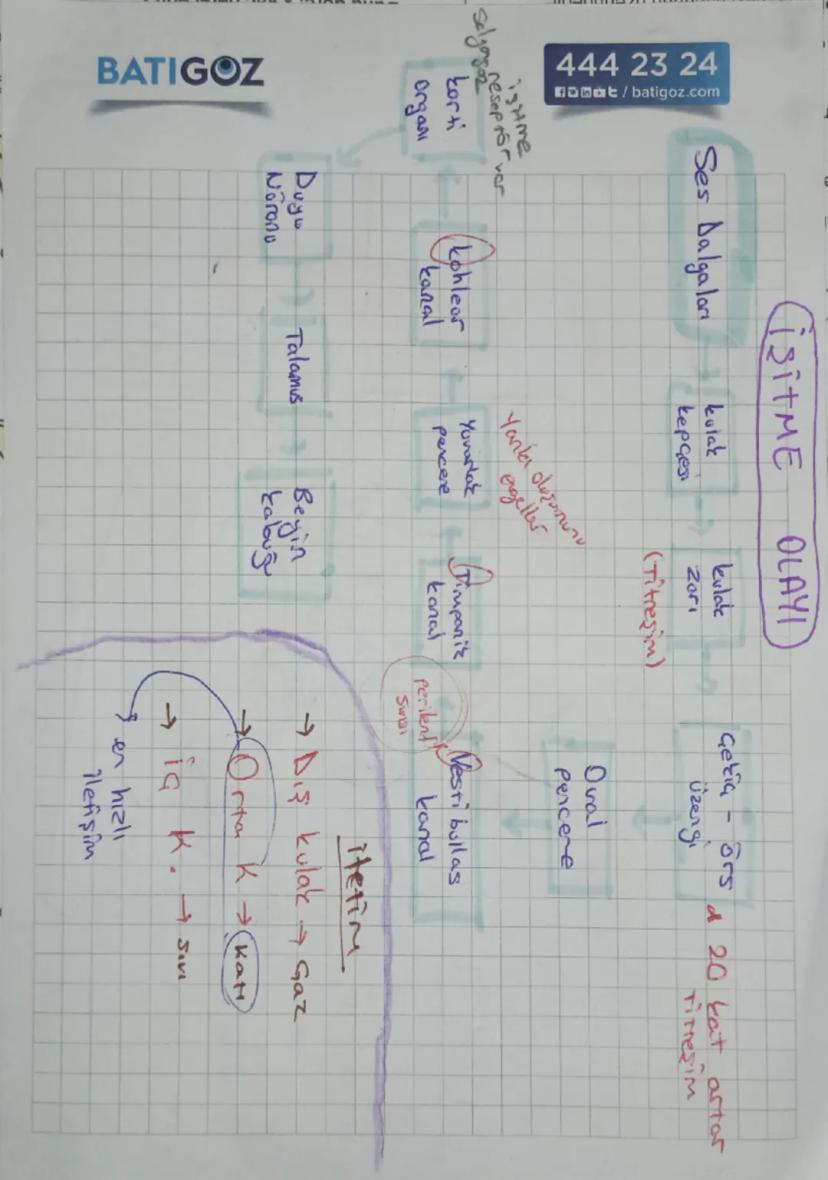 BATIGOZ
444 23 24
/ batigoz.com
İŞİTME OLAYI
Ses Dalgaları
kulak
kepçesi
kulak
zarı
(Titreşim)
Çekiç - Örs
üzengi
20 kat artar
titreşim
Oval
pencere
Vestibullas
kanal
perilenf
sıvısı
Timpanik
kanal
Yuvarlak
pencere
Yankı oluşumunu
engeller
kohlear
kanal
korti
organı
işitme
reseptör var
salyagoz
Duyu
Nöronu
Talamus
Beyin
kabuğu
iletim
→ Dış kulak → Gaz
→ Orta K → Katı
→ iç K. → sıvı
en hızlı
iletişim